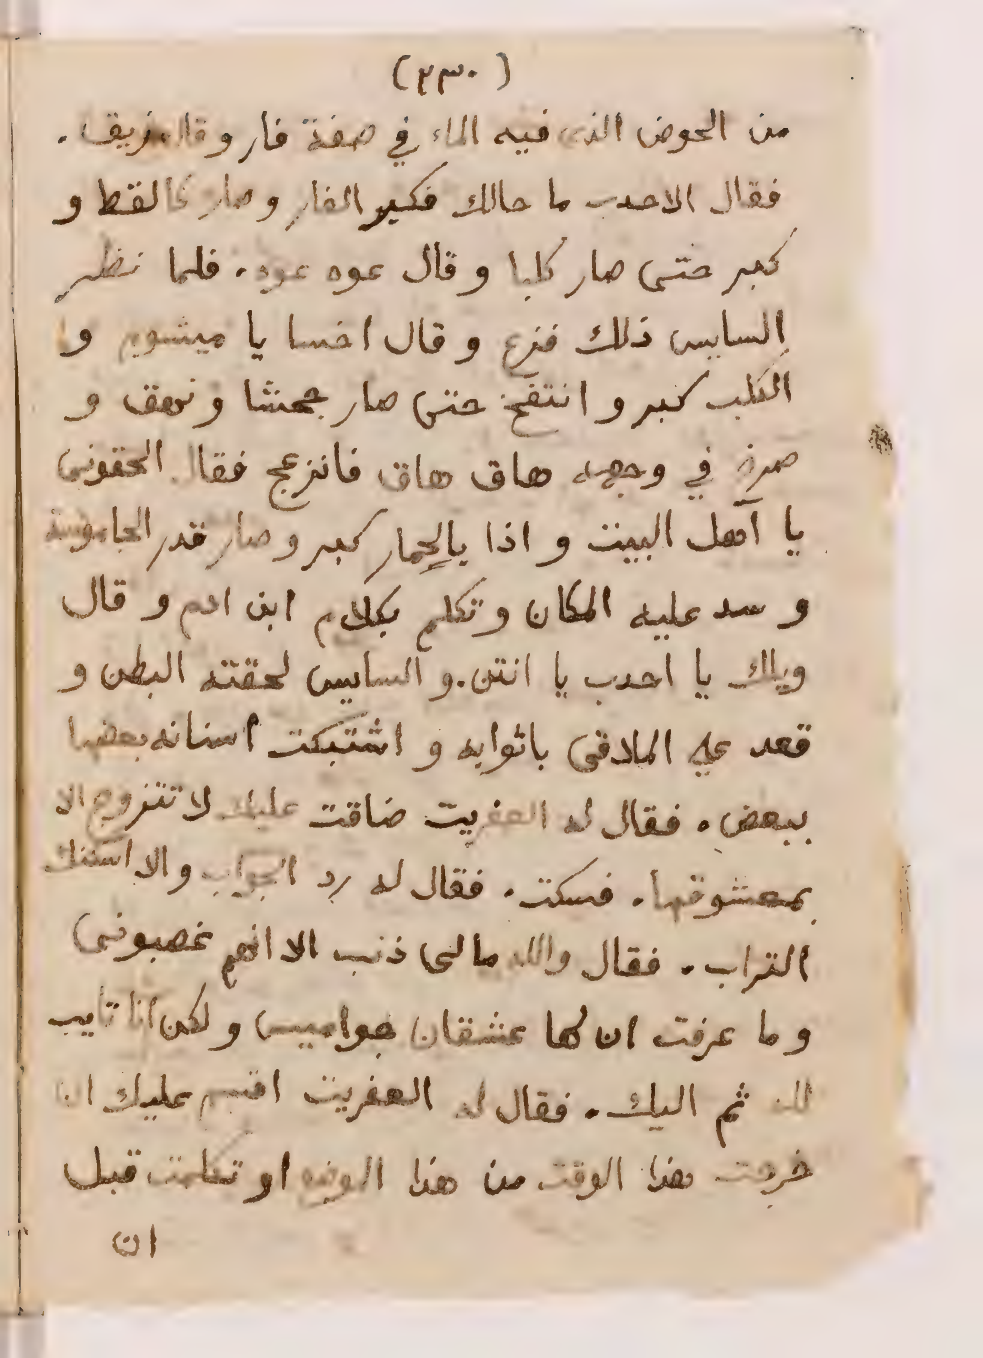 (٢٣٠)
من الحوض الذى فيه الماء في صفة فار وقال زيق .
فقال الاحدب ما حالك فكبر الفار وصار كالقط و
كبر حتى صار كلبا وقال عوه عوه . فلما نظر
السايس ذلك فزع وقال اخسا يا ميشوم و
الكلب كبر و انتفخ حتى صار جحشا ونهق و
صرخ في وجهه هاق هاق فانزعج فقال الحقونى
يا آهل البيت و اذا بالحمار كبر وصار قدر الجاموسة
و سد عليه المكان وتكلم بكلام ابن ادم و قال
ويلك يا احدب يا انتن . و السايس لحقته البطن و
قعد على الملاقى باثوابه و اشتبكت اسنانه بعضها
ببعض . فقال له العفريت ضاقت عليك لا تتزوج الا
بمعشوقتها . فسكت . فقال له رد الجواب والا اسكنك
التراب . فقال والله مالى ذنب الا انهم غصبونى
و ما عرفت ان لها عشقان جواميس و لكن انا تايب
لله ثم اليك . فقال له العفريت اقسم عليك ان
خرجت هذا الوقت من هذا الوضع او تكلمت قبل
ان